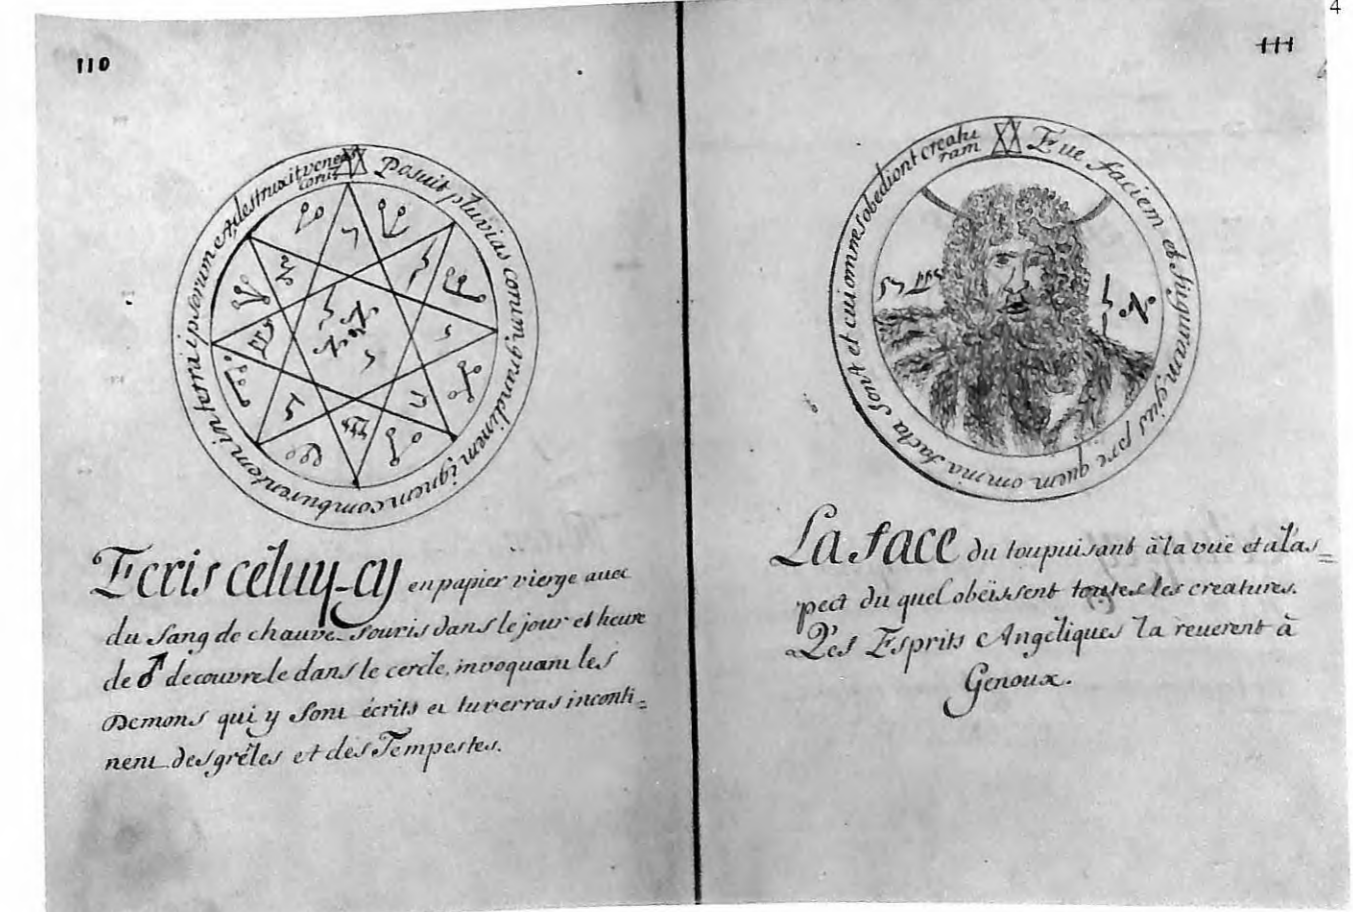 4
110
Posuit pluvias eorum grandinem ignem comburentem in terra ipsorum et destruxit
Ecris céluy-cy en papier vierge avec
du sang de chauve-souris dans le jour et heure
de ♂ decouvre le dans le cercle, invoquant les
Demons qui y sont écrits et tu verras inconti=
nent des grêles et des Tempestes.
111
faciem et figuram ejus per quem omnia facta sont et cui omnes obediont creatu
ram
La face du toupuisant à la vuë et à l'as=
pect du quel obeïssent toutes les creatures.
Les Esprits Angéliques la reverent à
Genoux.